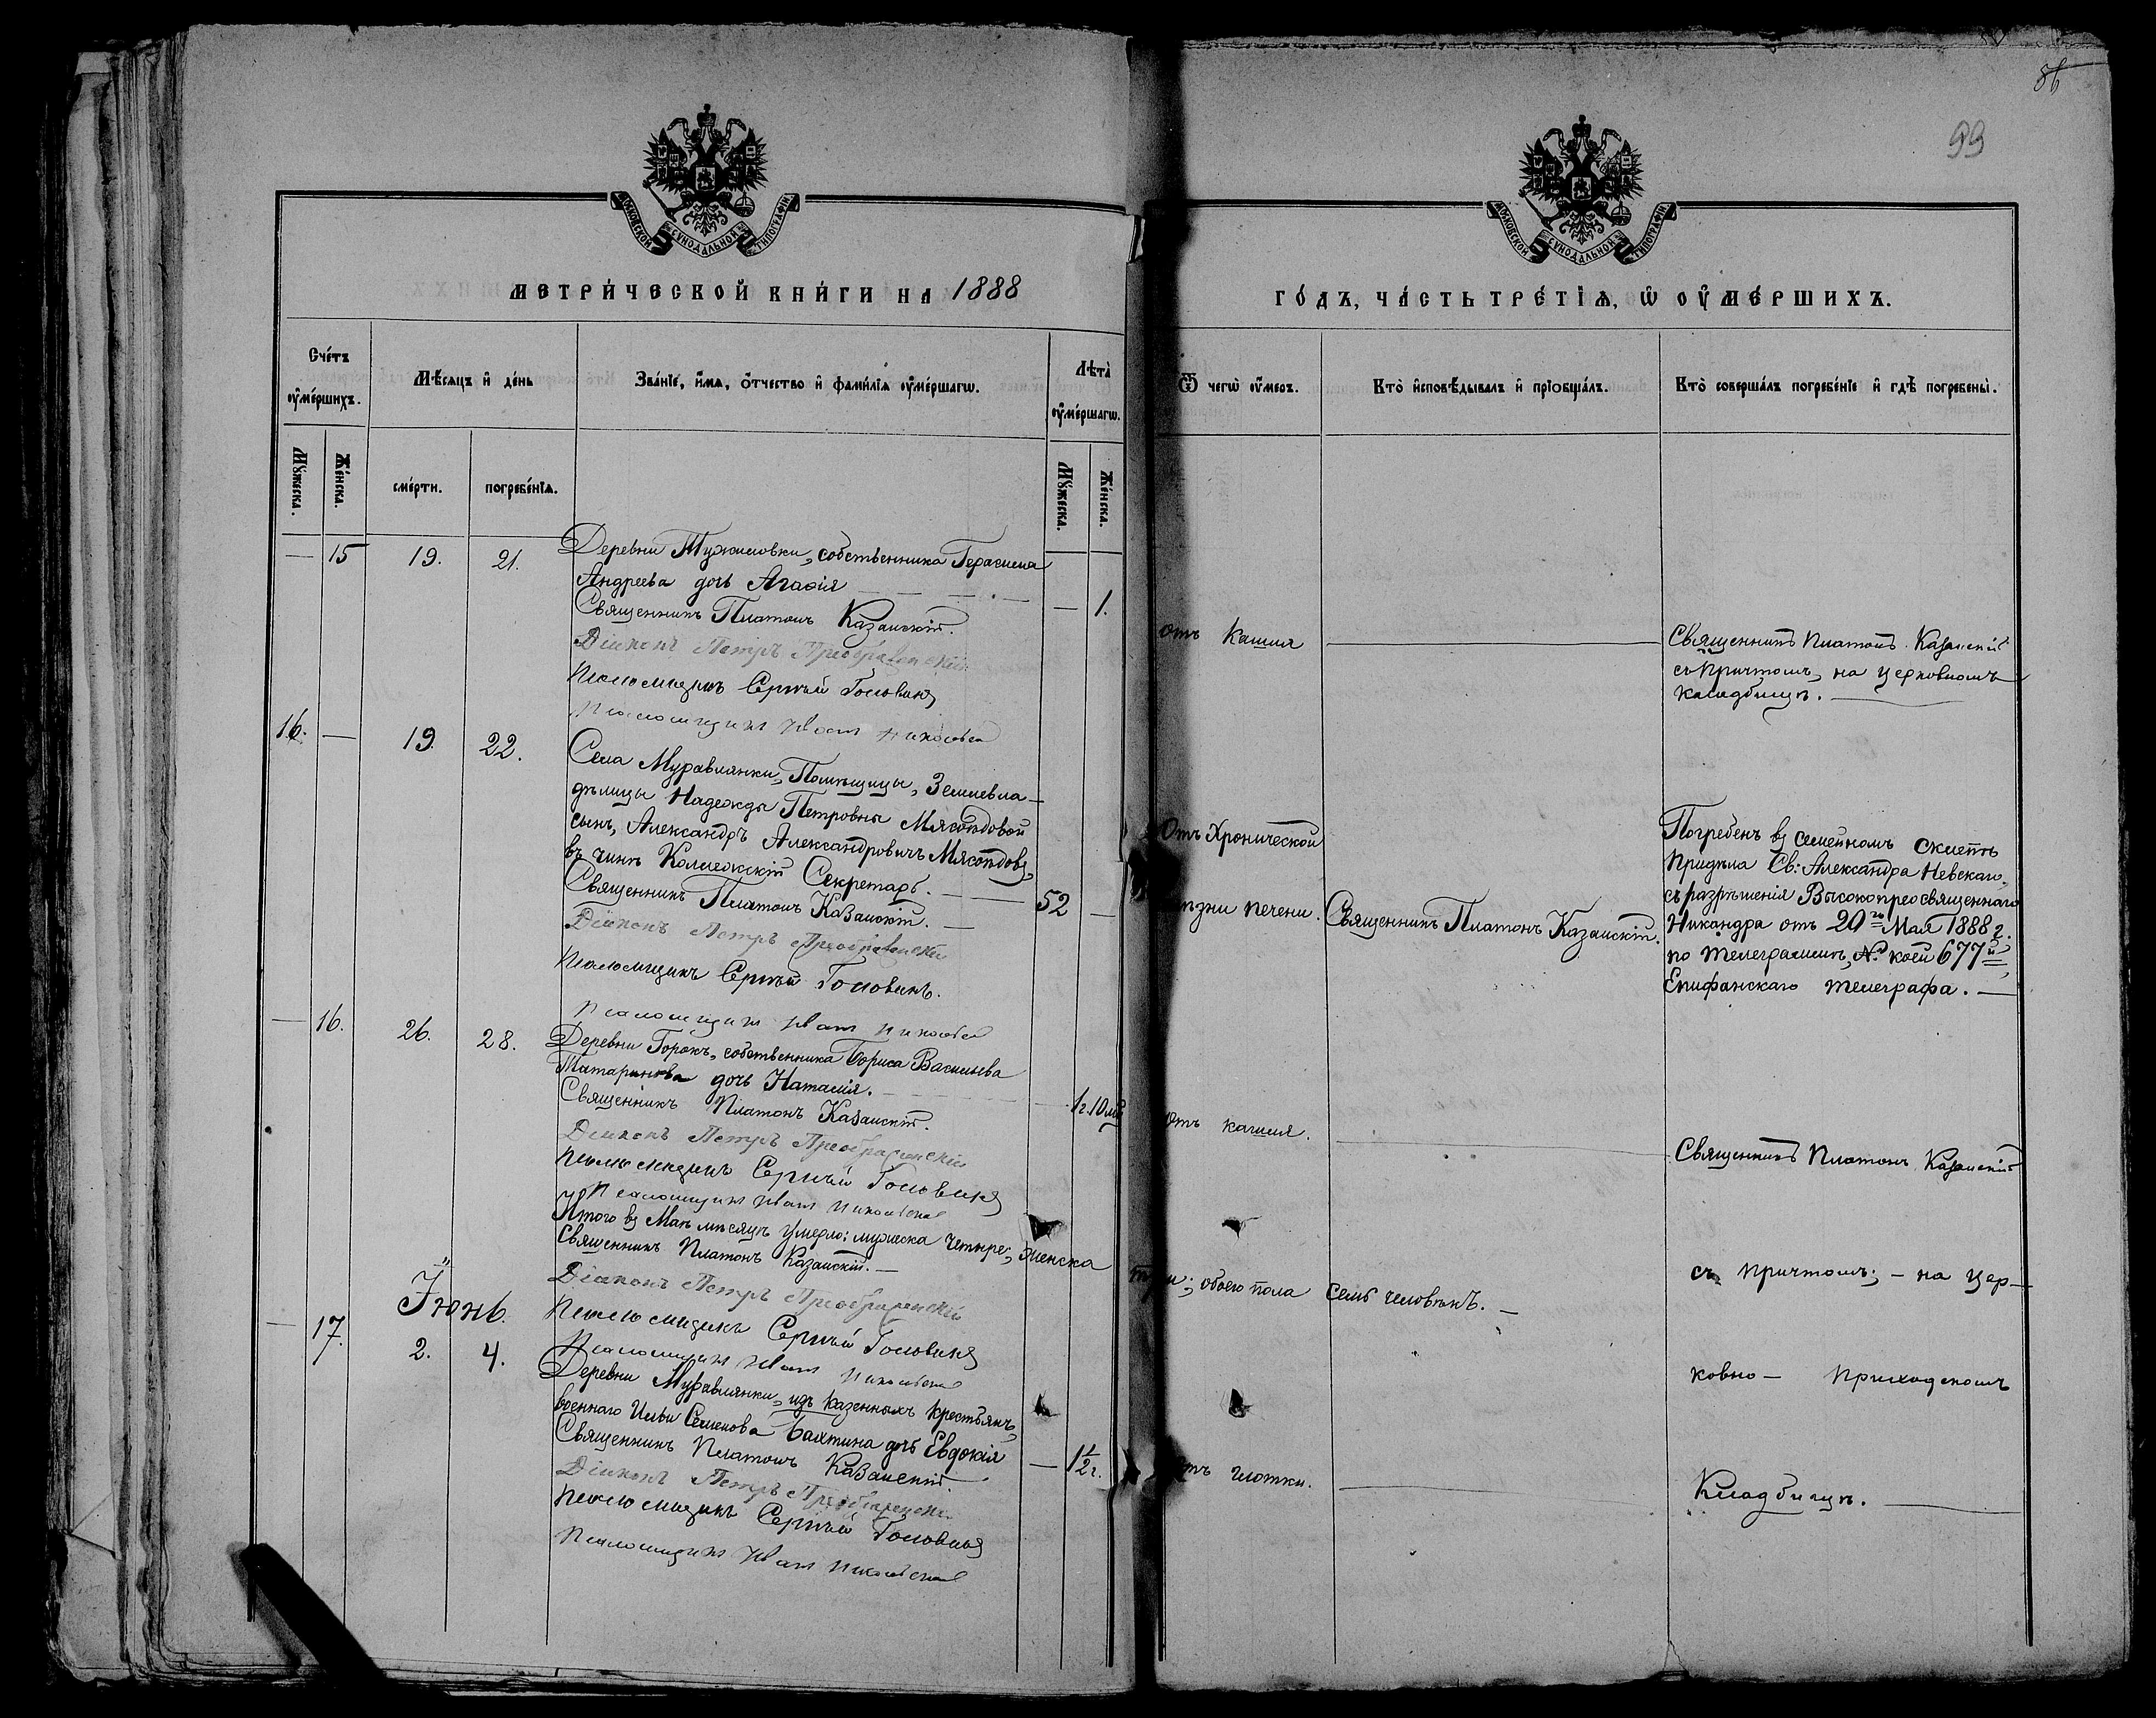 86
99
МОСКОВСКОЙ СѴНОДАЛЬНОЙ ТИПОГРАФІИ
МОСКОВСКОЙ СѴНОДАЛЬНОЙ ТИПОГРАФІИ
МЕТРИ́ЧЕСКОЙ КНИ́ГИ НА 1888
ГО́ДЪ, ЧА́СТЬ ТРЕ́ТІѦ, Ѡ҆ ОУ҆МЕ́РШИХЪ.
Сче́тъ оу҆ме́ршихъ.
Мѣ́сяцъ и҆ де́нь
Зва́нїе, и҆́мя, ѻ҆́тчество и҆ фами́лїя оу҆ме́ршагѡ.
Лѣта̀ оу҆ме́ршагѡ.
Ѿ чегѡ̀ оу҆́меръ.
Кто̀ и҆сповѣ́дывалъ и҆ прїѻбща́лъ.
Кто̀ соверша́лъ погребе́нїе и҆ гдѣ̀ погребены̀.
Мꙋ́жеска.
Же́нска.
сме́рти.
погребе́нїя.
Мꙋ́жеска.
Же́нска.
— 15 19. 21. Деревни Тужиловки, собственника Герасима
Андреева дочь Агафія — — — 1.
Священникъ Платонъ Казанскій.
Діаконъ Петръ Преображенскій
Псаломщикъ Сергѣй Головинъ
Псаломщикъ Иванъ Никольскій
отъ кашля
Священникъ Платонъ Казанскій
съ причтомъ, на церковномъ
кладбищѣ. —
16. — 19. 22. Села Муравлянки, Помѣщицы, Землевла-
дѣлицы Надежды Петровны Мясоѣдовой
сынъ, Александръ Александровичъ Мясоѣдовъ,
въ чинѣ Коллежскій Секретарь. — 52 —
Священникъ Платонъ Казанскій. —
Діаконъ Петръ Преображенскій
Псаломщикъ Сергѣй Головинъ.
Псаломщикъ Иванъ Никольскій
Отъ Хронической
болѣзни печени.
Священникъ Платонъ Казанскій.
Погребенъ въ семейномъ склепѣ
Придѣла Св: Александра Невскаго,
съ разрѣшенія Высокопреосвященнаго
Никандра отъ 20го Мая 1888 г.
по телеграммѣ, № коей 677й,
Епифанскаго телеграфа. —
— 16. 26. 28. Деревни Горокъ, собственника Бориса Васильева
Татаринова дочь Наталія. — 1г. 10 мѣ
Священникъ Платонъ Казанскій.
Діаконъ Петръ Преображенскій
Псаломщикъ Сергѣй Головинъ
Псаломщикъ Иванъ Никольскій
Отъ кашля.
Священникъ Платонъ Казанскій
Итого въ Маѣ мѣсяцѣ умерло: мужеска четыре, женска
три; обоего пола семь человѣкъ. —
Священникъ Платонъ Казанскій. —
Діаконъ Петръ Преображенскій
Псаломщикъ Сергѣй Головинъ
Псаломщикъ Иванъ Никольскій
съ причтомъ; — на цер-
Іюнь.
— 17. 2. 4. Деревни Муравлянки, изъ казенныхъ крестьянъ,
военнаго Ильи Семенова Бахтина дочь Евдокія — 1 1/2 г.
Священникъ Платонъ Казанскій.
Діаконъ Петръ Преображенскій
Псаломщикъ Сергѣй Головинъ
Псаломщикъ Иванъ Никольскій
отъ глотки.
ковно — приходскомъ
Кладбищѣ. —